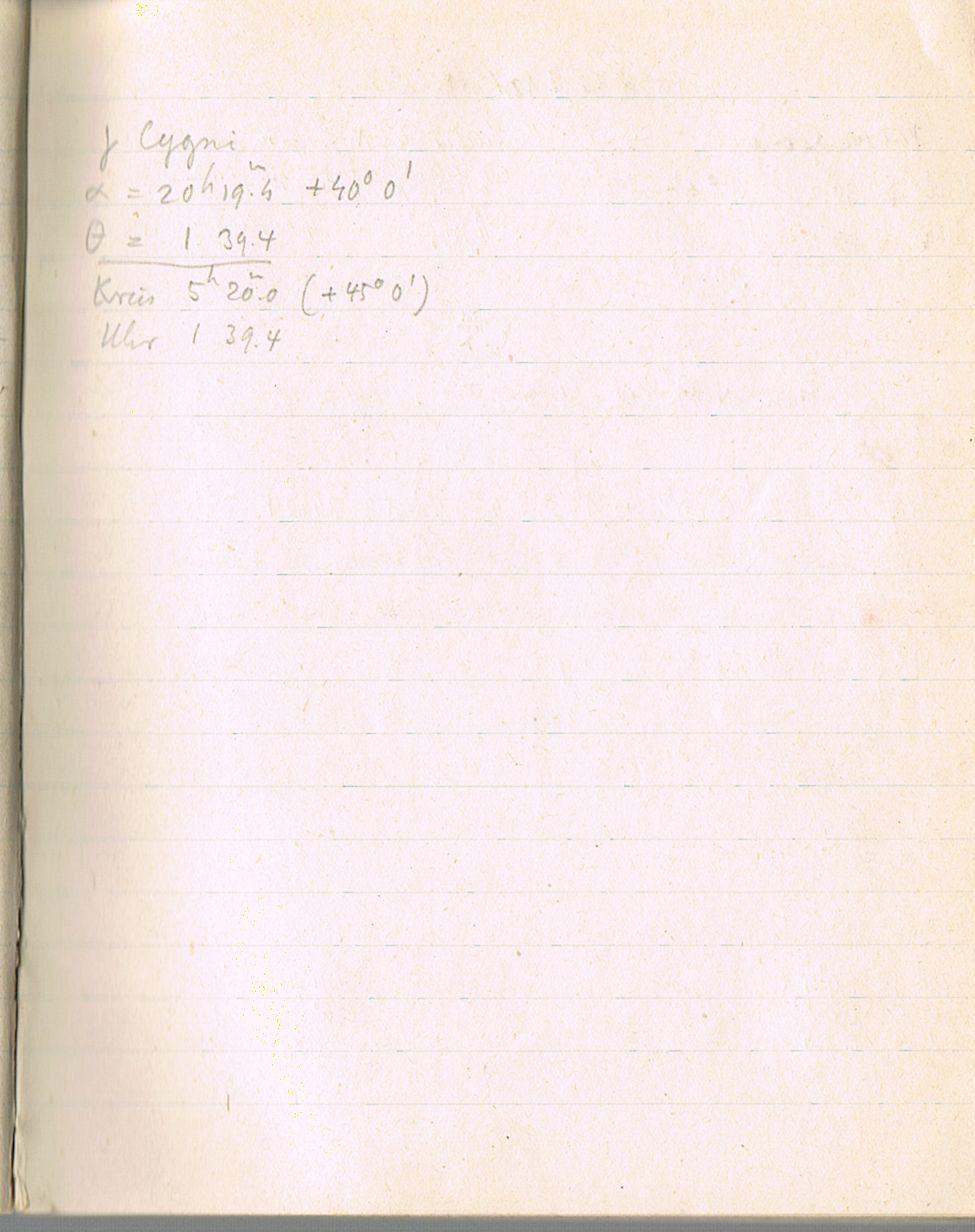 γ Cygni
α = 20ʰ19.ᵐ4 +40° 0'
θ = 1 39.4
Kreis 5ʰ 20.ᵐ0 (+45° 0')
Uhr 1 39.4